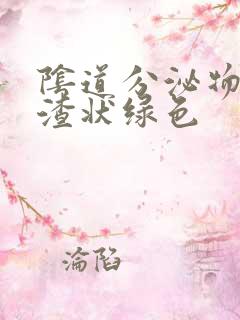 陰道分泌物
渣状绿色
淪陷